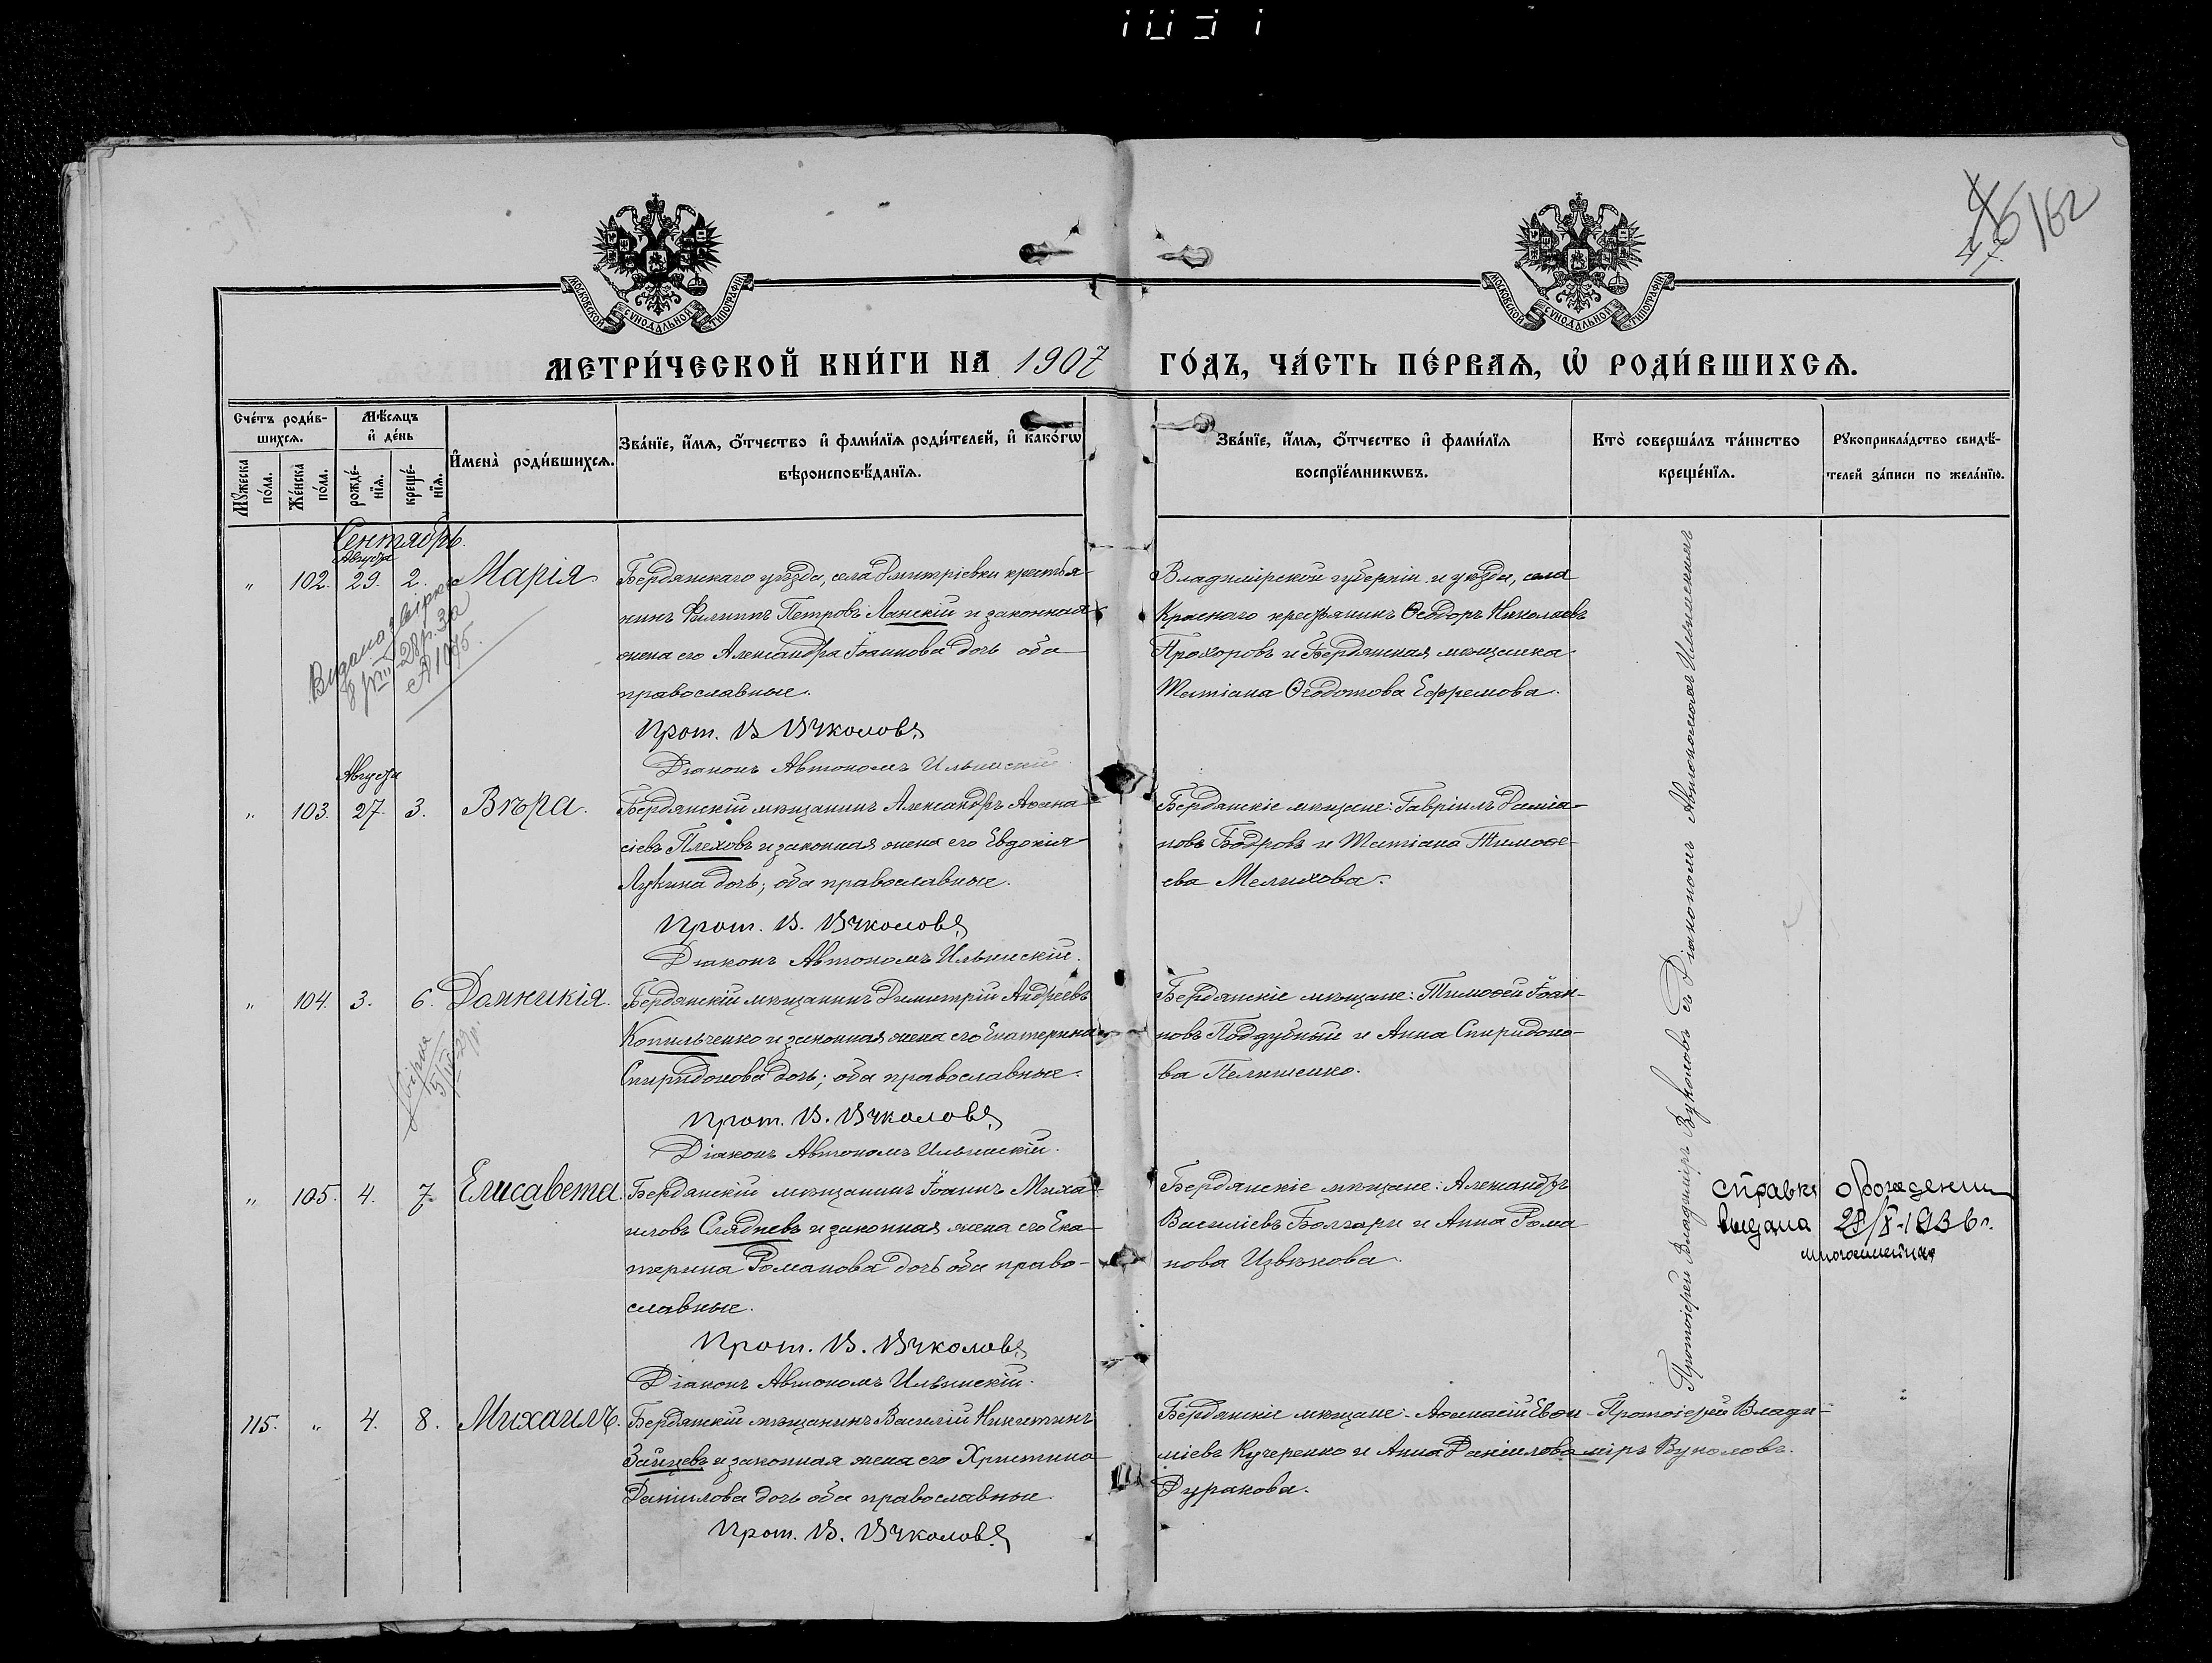 46 162
МОСКОВСКОЙ СѴНОДАЛЬНОЙ ТИПОГРАФІИ
МОСКОВСКОЙ СѴНОДАЛЬНОЙ ТИПОГРАФІИ
МЕТРИ́ЧЕСКОЙ КНИ́ГИ НА 1907 ГО́ДЪ, ЧА́СТЬ ПЕ́РВАѦ, Ѡ҆ РОДИ́ВШИХСѦ.
Сче́тъ роди́в-
шихсѧ.
Мꙋ́жеска
по́ла.
Же́нска
по́ла.
Мѣ́сѧцъ
и҆ де́нь
рожде́-
нїѧ.
креще́-
нїѧ.
И҆мена̀ роди́вшихсѧ.
Зва́нїе, и҆́мѧ, ѻ҆́тчество и҆ фами́лїѧ роди́телей, и҆ како́гѡ
вѣроисповѣ́данїѧ.
Зва́нїе, и҆́мѧ, ѻ҆́тчество и҆ фами́лїѧ
воспрїе́мникѡвъ.
Кто̀ соверша́лъ та́инство
креще́нїѧ.
Рꙋкоприкла́дство свидѣ́-
телей за́писи по жела́нїю.
Сентябрь.
Августа
" 102. 29. 2. Марія
Бердянскаго уѣзда, села Дмитріевки крестья-
нинъ Филиппъ Петровъ Ланскій и законная
жена его Александра Іоаннова дочь оба
православные.
Прот. В Вуколовъ
Діаконъ Автономъ Ильинскій.
Владимірской губерніи и уѣзда, села
Краснаго крестьянинъ Ѳеодоръ Николаевъ
Прохоровъ и Бердянская мѣщанка
Татіана Ѳеодотова Ефремова.
Видано
28 р. За
№ 1075.
Августа
" 103. 27. 3. Вѣра.
Бердянскій мѣщанинъ Александръ Аѳана-
сіевъ Плеховъ и законная жена его Евдокія
Лукина дочь; оба православные.
Прот. В. Вуколовъ
Діаконъ Автономъ Ильинскій.
Бердянскіе мѣщане: Гавріилъ Даміа-
новъ Бодровъ и Татіана Тимоѳе-
ева Мелихова.
" 104. 3. 6. Домникія.
Бердянскій мѣщанинъ Димитрій Андреевъ
Копильченко и законная жена его Екатерина
Спиридонова дочь; оба православные.
Прот. В. Вуколовъ
Діаконъ Автономъ Ильинскій.
Бердянскіе мѣщане: Тимоѳей Іоан-
новъ Поддубный и Анна Спиридоно-
ва Пелишенко.
" 105. 4. 7. Елисавета.
Бердянскій мѣщанинъ Іоаннъ Миха-
иловъ Сляднев и законная жена его Ека-
терина Романова дочь оба право-
славные.
Прот. В. Вуколовъ
Діаконъ Автономъ Ильинскій.
Бердянскіе мѣщане: Александръ
Василіевъ Болгари и Анна Рома-
нова Извѣкова.
Протоіерей Владиміръ Вуколовъ съ Діакономъ Автономомъ Ильинскимъ
справка о рождении
выдана 28/X-1936 г.
115. " 4. 8. Михаилъ.
Бердянскій мѣщанинъ Василій Никитинъ
Зайцевъ и законная жена его Христина
Даніилова дочь оба православные.
Прот. В. Вуколовъ
Бердянскіе мѣщане: Аѳанасій Евѳи-
міевъ Кучеренко и Анна Даніилова
Дуракова.
Протоіерей Влади-
міръ Вуколовъ.